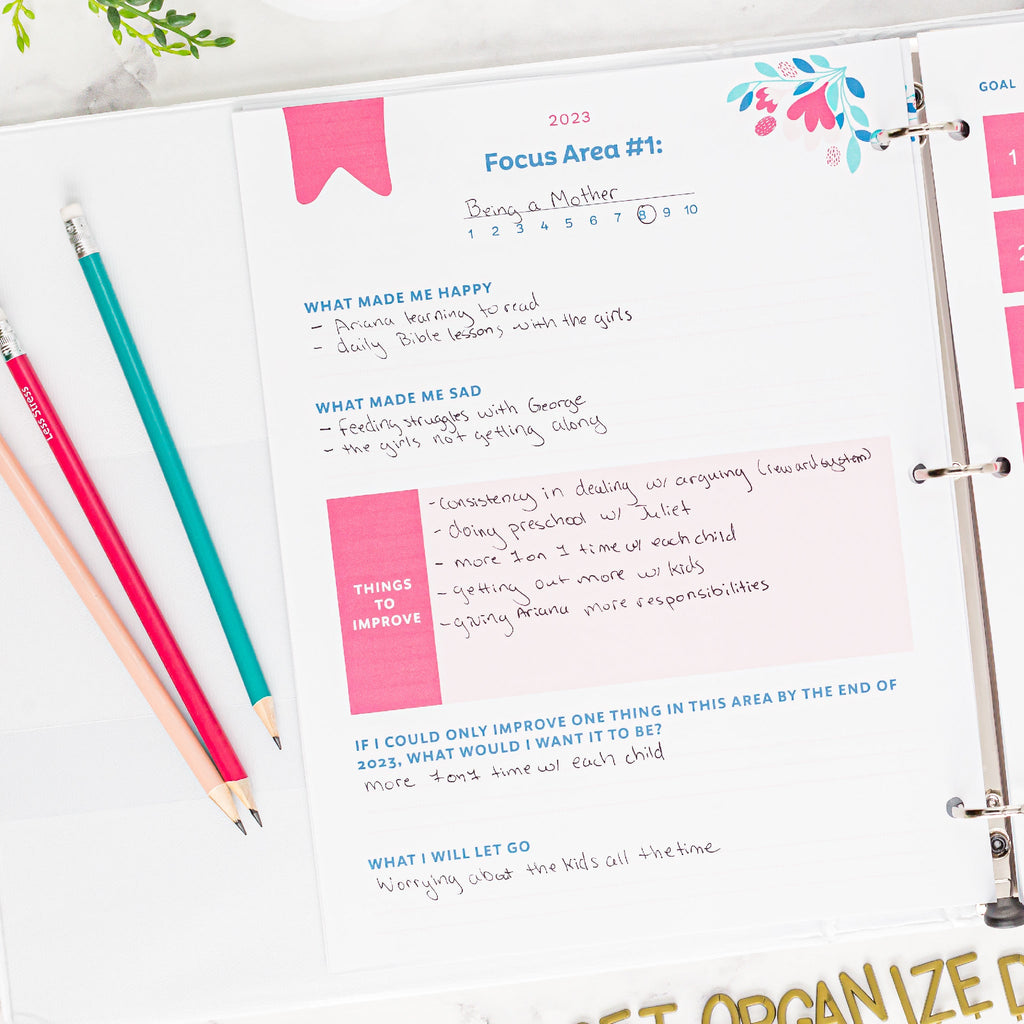 2023
Focus Area #1:
Being a Mother
1 2 3 4 5 6 7 8 9 10
WHAT MADE ME HAPPY
- Ariana learning to read
- daily Bible lessons with the girls
WHAT MADE ME SAD
- feeding struggles with George
- the girls not getting along
THINGS
TO
IMPROVE
- Consistency in dealing w/ arguing (reward system)
- doing preschool w/ Juliet
- more 1 on 1 time w/ each child
- getting out more w/ kids
- giving Ariana more responsibilities
IF I COULD ONLY IMPROVE ONE THING IN THIS AREA BY THE END OF
2023, WHAT WOULD I WANT IT TO BE?
more 1on1 time w/ each child
WHAT I WILL LET GO
Worrying about the kids all the time
GOAL
1
2
Less Stress
GET ORGANIZED